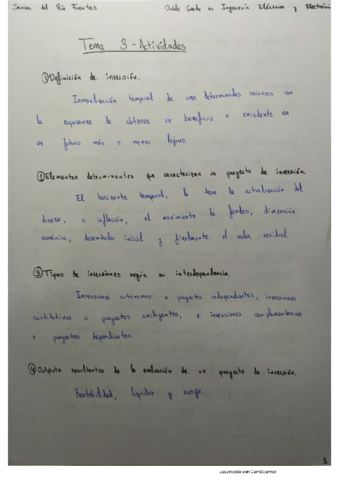 Javier del Río Fuentes Doble Grado en Ingeniería Eléctrica y Electrónica
Tema 3 - Actividades
① Definición de inversión.
Inmovilización temporal de unos determinados recursos con
la esperanza de obtener un beneficio o excedente en
un futuro más o menos lejano.
② Elementos determinantes que caracterizan un proyecto de inversión.
El horizonte temporal, la tasa de actualización del
dinero, o inflación, el movimiento de fondos, dimensión
económica, desembolso inicial y finalmente el valor residual.
③ Tipos de inversiones según su interdependencia.
Inversiones autónomas o proyectos independientes, inversiones
sustitutivas o proyectos excluyentes, e inversiones complementarias
o proyectos dependientes.
④ Outputs resultantes de la evaluación de un proyecto de inversión.
Rentabilidad, liquidez y riesgo.
1
Escaneado con CamScanner